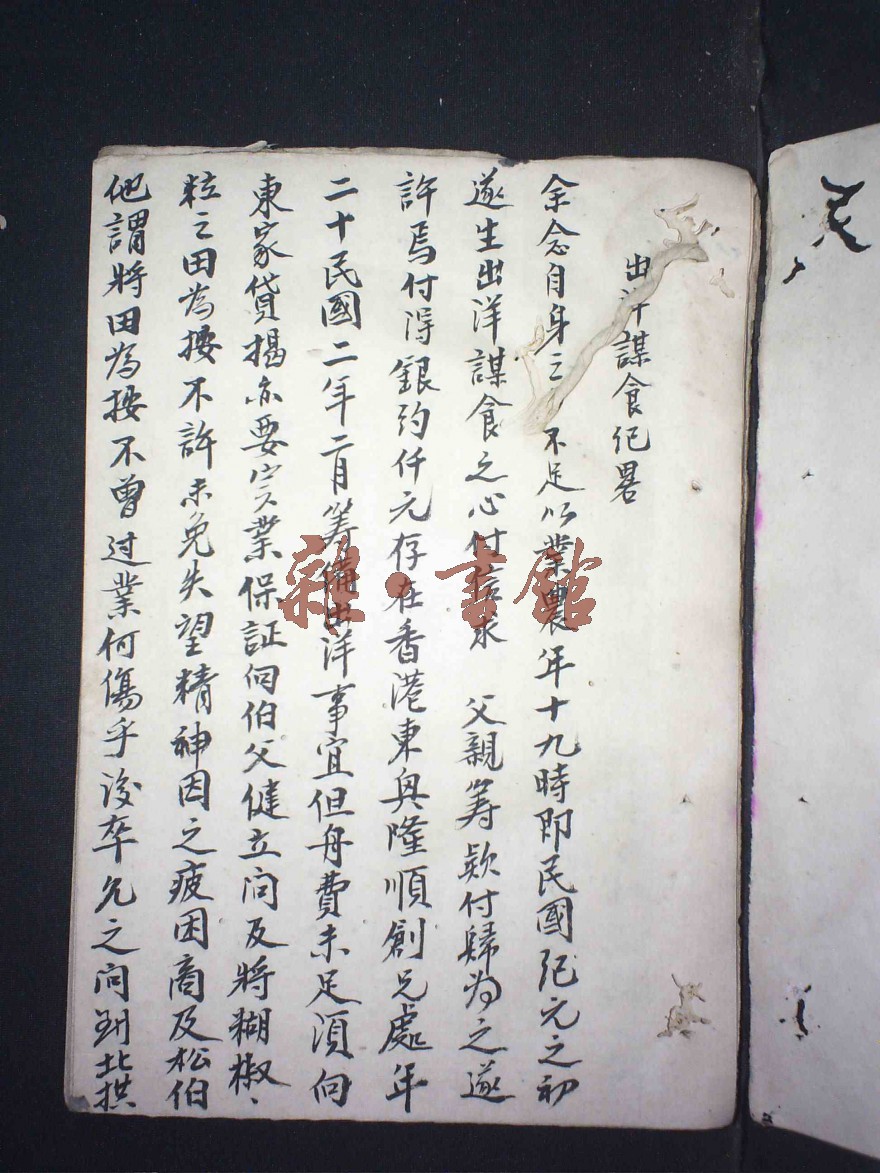 出洋謀食纪畧
余念自身之 不足以業農年十九時即民國纪元之初
遂生出洋謀食之心付信求 父親筹欵付歸为之遂
許焉付淂銀約仟元存在香港東興隆順創兄處年
二十民國二年二月筹備出洋事宜但舟費未足湏向
東家貸揭亦要实業保証伺伯父健立问及將糊椒、
粒之田為按不許未免失望精神因之疲困商及松伯
他謂將田為按不曾过業何傷乎後卒允之问到北拱
雜·書館